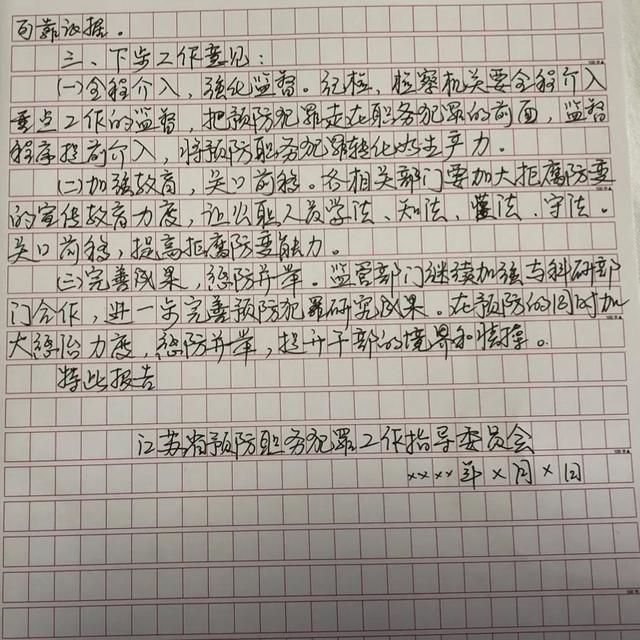 可靠证据。
三、下步工作意见：
(一)全程介入，强化监督。纪检、检察机关要全程介入
重点工作的监督，把预防犯罪走在职务犯罪的前面，监督
程序提前介入，将预防职务犯罪转化为生产力。
(二)加强教育，关口前移。各相关部门要加大拒腐防变
的宣传教育力度，让公职人员学法、知法、懂法、守法。
关口前移，提高拒腐防变能力。
(三)完善成果，惩防并举。监管部门继续加强与科研部
门合作，进一步完善预防犯罪研究成果。在预防的同时加
大惩治力度，惩防并举，提升干部的境界和情操。
特此报告
江苏省预防职务犯罪工作指导委员会
××××年×月×日